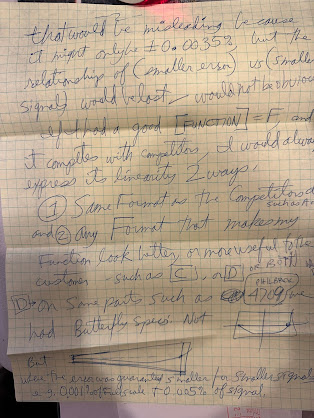 that would be misleading because
it might only be ± 0.0035%, but the
relationship of (smaller error) vs (smaller
signal) would be lost - would not be obvious
If I had a good [FUNCTION] = F, and
it competes with competitors, I would always
express its linearity 2 ways.
① Same Format as the Competitors do
such as A
and ② Any Format that makes my
Function look better, or more useful to the
customer - such as [C], or [D] or BOTH
[D] on some parts such as PHILBRICK 4709, we
had Butterfly Specs. Not
But
where the error was guaranteed smaller for smaller signals
e.g. 0.001% of full scale + 0.005% of signal.